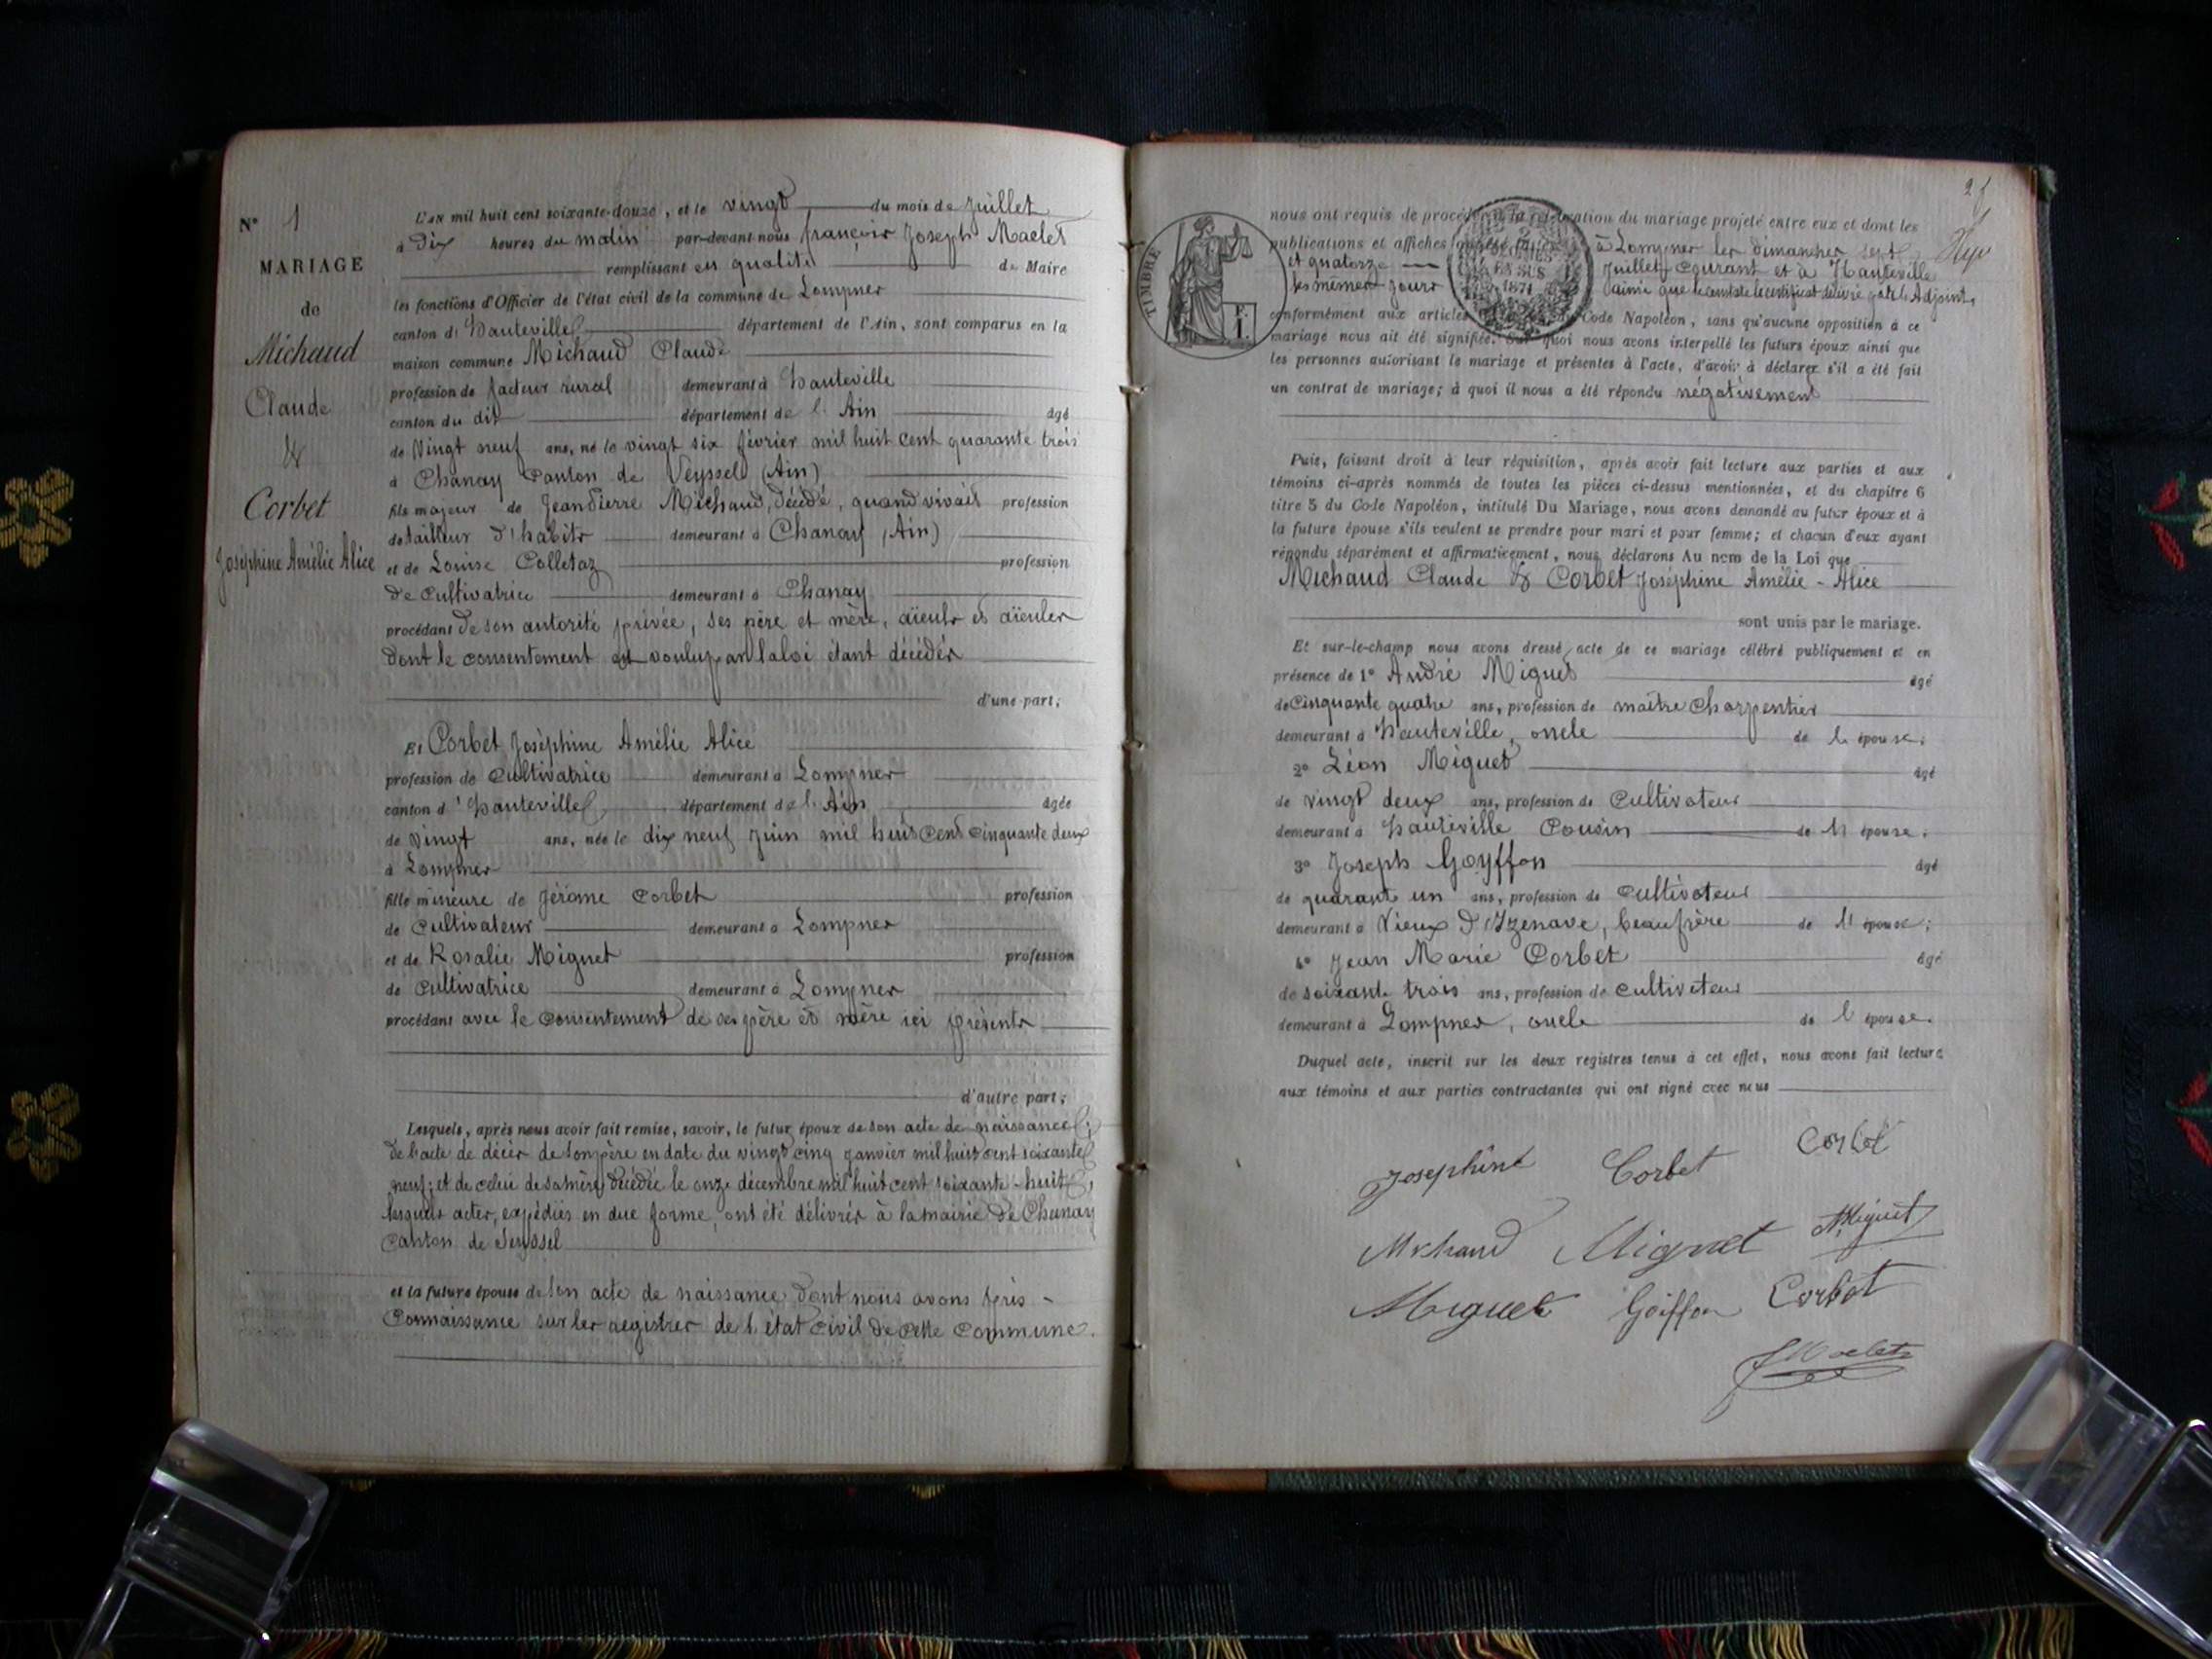 N° 1
MARIAGE
de
Michaud
Claude
&
Corbet
Joséphine Amélie Alice
L'AN mil huit cent soixante-douze, et le vingt du mois de Juillet
à Dix heures du matin par-devant nous françois Joseph Maclet
remplissant en qualité de Maire
les fonctions d'Officier de l'état civil de la commune de Lompnes
canton d' Hauteville département de l'Ain, sont comparus en la
maison commune Michaud Claude
profession de facteur rural demeurant à Hauteville
canton du dit département de l' Ain âgé
de Vingt neuf ans, né le vingt six février mil huit cent quarante trois
à Chanay Canton de Seyssel (Ain)
fils majeur de Jean Pierre Michaud, décédé, quand vivait profession
de tailleur d'habits demeurant à Chanay (Ain)
et de Louise Colletaz profession
de Cultivatrice demeurant à Chanay
procédant de son autorité privée, ses père et mère, aïeuls et aïeules
dont le consentement est voulu par la loi étant décédés
d'une part;
Et Corbet Joséphine Amélie Alice
profession de Cultivatrice demeurant à Lompnes
canton d' Hauteville département de l' Ain âgée
de Vingt ans, née le dix neuf Juin mil huit cent cinquante deux
à Lompnes
fille mineure de Jérôme Corbet profession
de Cultivateur demeurant à Lompnes
et de Rosalie Miguet profession
de Cultivatrice demeurant à Lompnes
procédant avec le consentement de ses père et mère ici présents
d'autre part;
Lesquels, après nous avoir fait remise, savoir, le futur époux de son acte de naissance;
de l'acte de décès de son père en date du vingt cinq janvier mil huit cent soixante
neuf; et de celui de sa mère décédée le onze décembre mil huit cent soixante-huit,
lesquels actes, expédiés en due forme, ont été délivrés à la mairie de Chanay
Canton de Seyssel
et la future épouse de son acte de naissance dont nous avons pris
Connaissance sur les registres de l'état civil de cette Commune.
2
TIMBRE
F.
1.
1871
nous ont requis de procéder à la célébration du mariage projeté entre eux et dont les
publications et affiches ont été faites à Lompnes les dimanches sept
et quatorze Juillet Courant et à Hauteville
les mêmes jours ainsi que le constate le certificat délivré par l'Adjoint,
conformément aux articles du Code Napoléon, sans qu'aucune opposition à ce
mariage nous ait été signifiée. Sur quoi nous avons interpellé les futurs époux ainsi que
les personnes autorisant le mariage et présentes à l'acte, d'avoir à déclarer s'il a été fait
un contrat de mariage; à quoi il nous a été répondu négativement
Puis, faisant droit à leur réquisition, après avoir fait lecture aux parties et aux
témoins ci-après nommés de toutes les pièces ci-dessus mentionnées, et du chapitre 6
titre 5 du Code Napoléon, intitulé Du Mariage, nous avons demandé au futur époux et à
la future épouse s'ils veulent se prendre pour mari et pour femme; et chacun d'eux ayant
répondu séparément et affirmativement, nous déclarons Au nom de la Loi que
Michaud Claude & Corbet Joséphine Amélie-Alice
sont unis par le mariage.
Et sur-le-champ nous avons dressé acte de ce mariage célébré publiquement et en
présence de 1° André Miguet âgé
de Cinquante quatre ans, profession de maître Charpentier
demeurant à Hauteville, oncle de l' épouse;
2° Léon Miguet âgé
de vingt deux ans, profession de Cultivateur
demeurant à Hauteville Cousin de l' épouse;
3° Joseph Goyffon âgé
de quarante un ans, profession de Cultivateur
demeurant à Vieux d'Izenave, beaufrère de l' épouse;
4° Jean Marie Corbet âgé
de soixante trois ans, profession de cultivateur
demeurant à Lompnes, oncle de l' épouse.
Duquel acte, inscrit sur les deux registres tenus à cet effet, nous avons fait lecture
aux témoins et aux parties contractantes qui ont signé avec nous
Josephine Corbet Corbet
Michaud Miguet A. Miguet
Miguet Goiffon Corbet
J Maclet